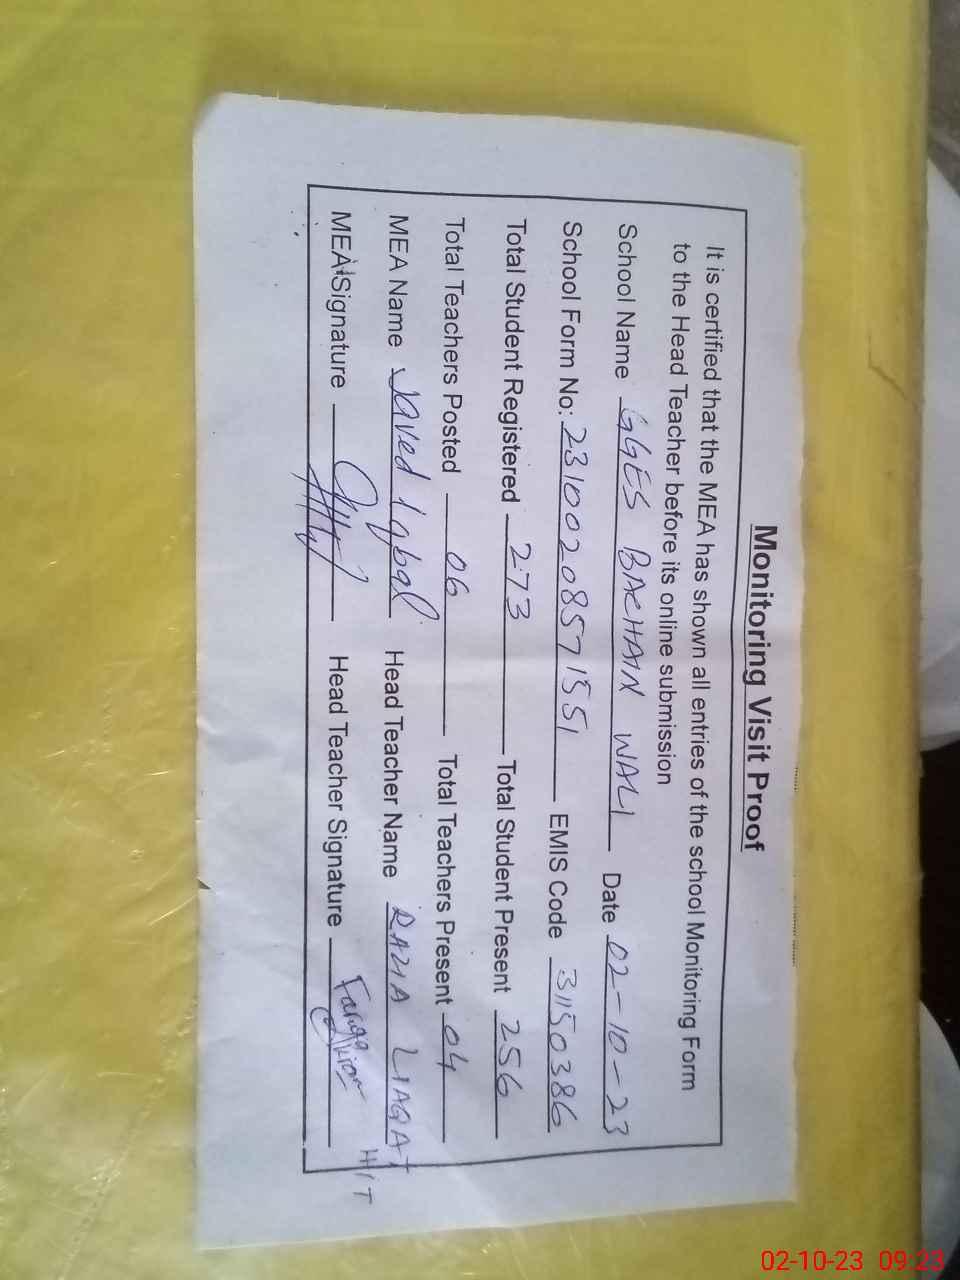 Monitoring Visit Proof
It is certified that the MEA has shown all entries of the school Monitoring Form
to the Head Teacher before its online submission
School Name GGES BACHAIN WALI Date 02-10-23
School Form No: 23100208571551 EMIS Code 31150386
Total Student Registered 273 Total Student Present 256
Total Teachers Posted 06 Total Teachers Present 04
MEA Name Javed Iqbal Head Teacher Name RAZIA LIAQAT
H/T
MEA Signature Head Teacher Signature Fariga Kiran
02-10-23 09:23